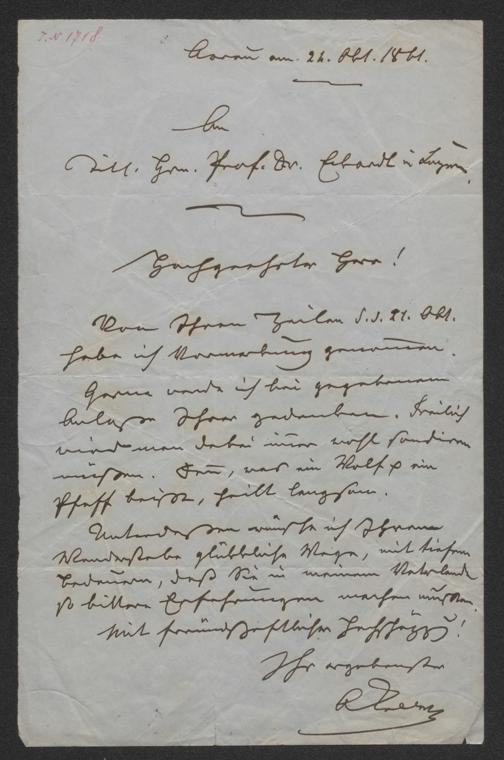 T. N 1718.
Aarau am 24. Okt. 1861.
An
Titl. Hrn. Prof. Dr. Eckardt in Luzern.
Hochgeehrter Herr!
Von Ihren Zeilen d. d. 21. Okt.
habe ich Vormerkung genommen.
Gerne werde ich bei gegebenem
Anlasse Ihrer gedenken. Freilich
wird man dabei immer wohl sondiren
müssen. Denn, was ein Wolf & ein
Pfaff beißt, heilt langsam.
Unterdessen wünsche ich Ihrem
Wanderstabe glückliche Wege, mit tiefem
Bedauern, daß Sie in meinem Vaterlande
so bittere Erfahrungen machen mußten.
Mit freundschaftlicher Hochschätzung!
Ihr ergebenster